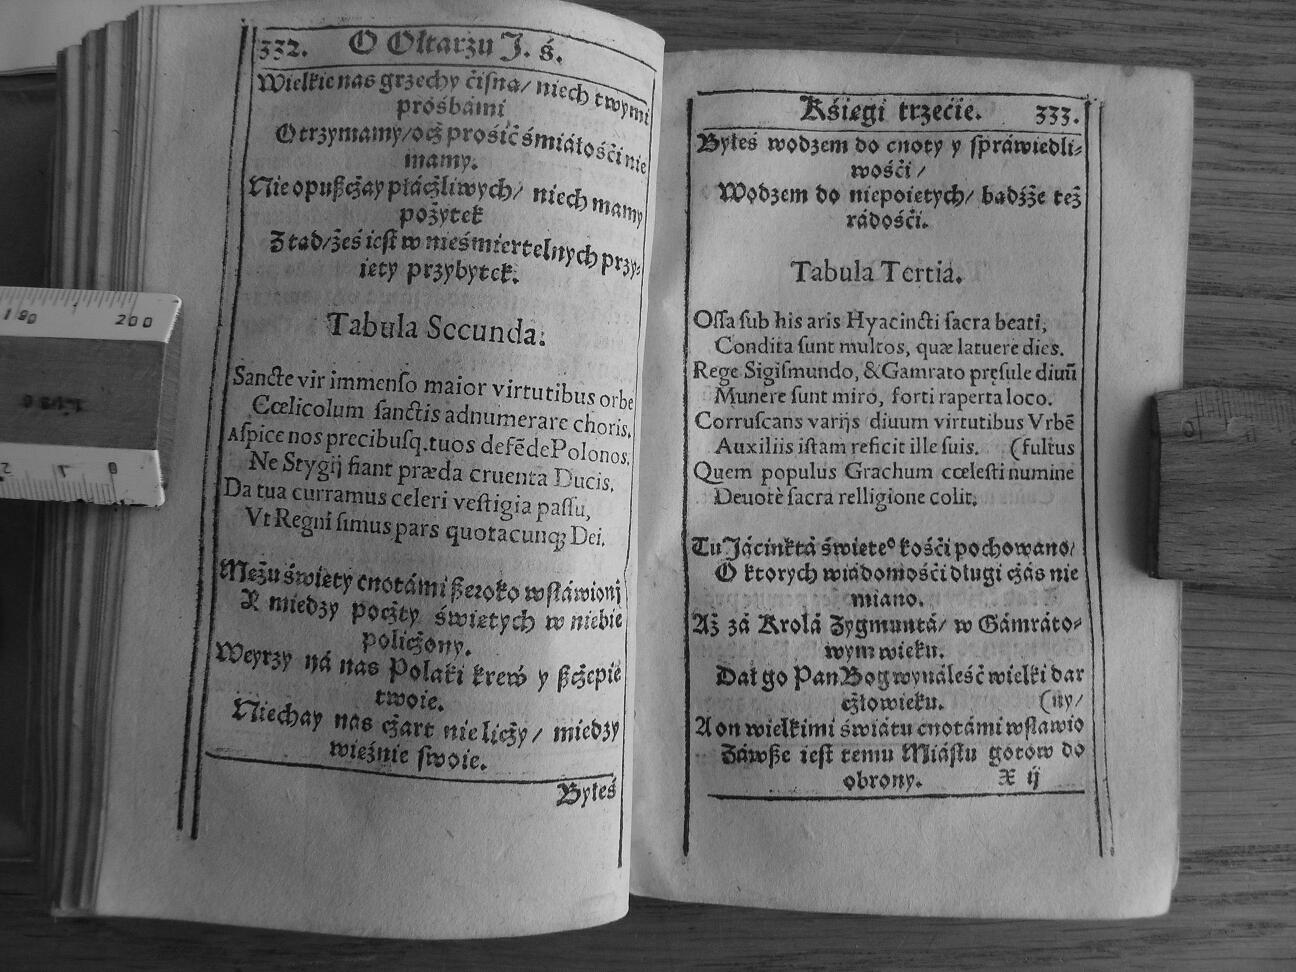 332. O Ołtarzu J. ś.
Wielkie nas grzechy ćisną/ niech twymi
prośbámi
Otrzymamy/ocż prośić śmiáłośći nie
mamy.
Nie opußcżay płácżliwych/ niech mamy
pożytek
Z tąd/żeś iest w nieśmiertelnych przy-
ięty przybytek.
Tabula Secunda.
Sancte vir immenso maior virtutibus orbe
Cœlicolum sanctis adnumerare choris.
Aspice nos precibusq. tuos defẽde Polonos.
Ne Stygij fiant præda cruenta Ducis.
Da tua curramus celeri vestigia passu,
Vt Regni simus pars quotacunq; Dei.
Mężu święty cnotámi ßeroko wsławiony
A między pocżty świętych w niebie
policżony.
Weyrzy ná nas Polaki krew y ßcżepie
twoie.
Niechay nas cżart nie licży/ miedzy
więźnie swoie.
Byłeś
200
190
Kśięgi trzećie. 333.
Byłeś wodzem do cnoty y spráwiedli-
wośći/
Wodzem do niepoiętych/ bądźże też
rádośći.
Tabula Tertia.
Ossa sub his aris Hyacincti sacra beati,
Condita sunt multos, quæ latuere dies.
Rege Sigismundo, & Gamrato pręsule diuũ
Munere sunt miro, forti raperta loco.
Corruscans varijs diuum virtutibus Vrbẽ
Auxiliis istam reficit ille suis. (fultus
Quem populus Grachum cœlesti numine
Deuotè sacra relligione colit.
Tu Jácinktá święteº kośći pochowano/
O ktorych wiádomośći długi cżás nie
miano.
Aż zá Krolá Zygmuntá/ w Gámráto-
wym wieku.
Dał go Pan Bog wynáleść wielki dar
cżłowieku. (ny/
A on wielkimi świátu cnotámi wsławio
Záwße iest temu Miástu gotow do
obrony. X ij